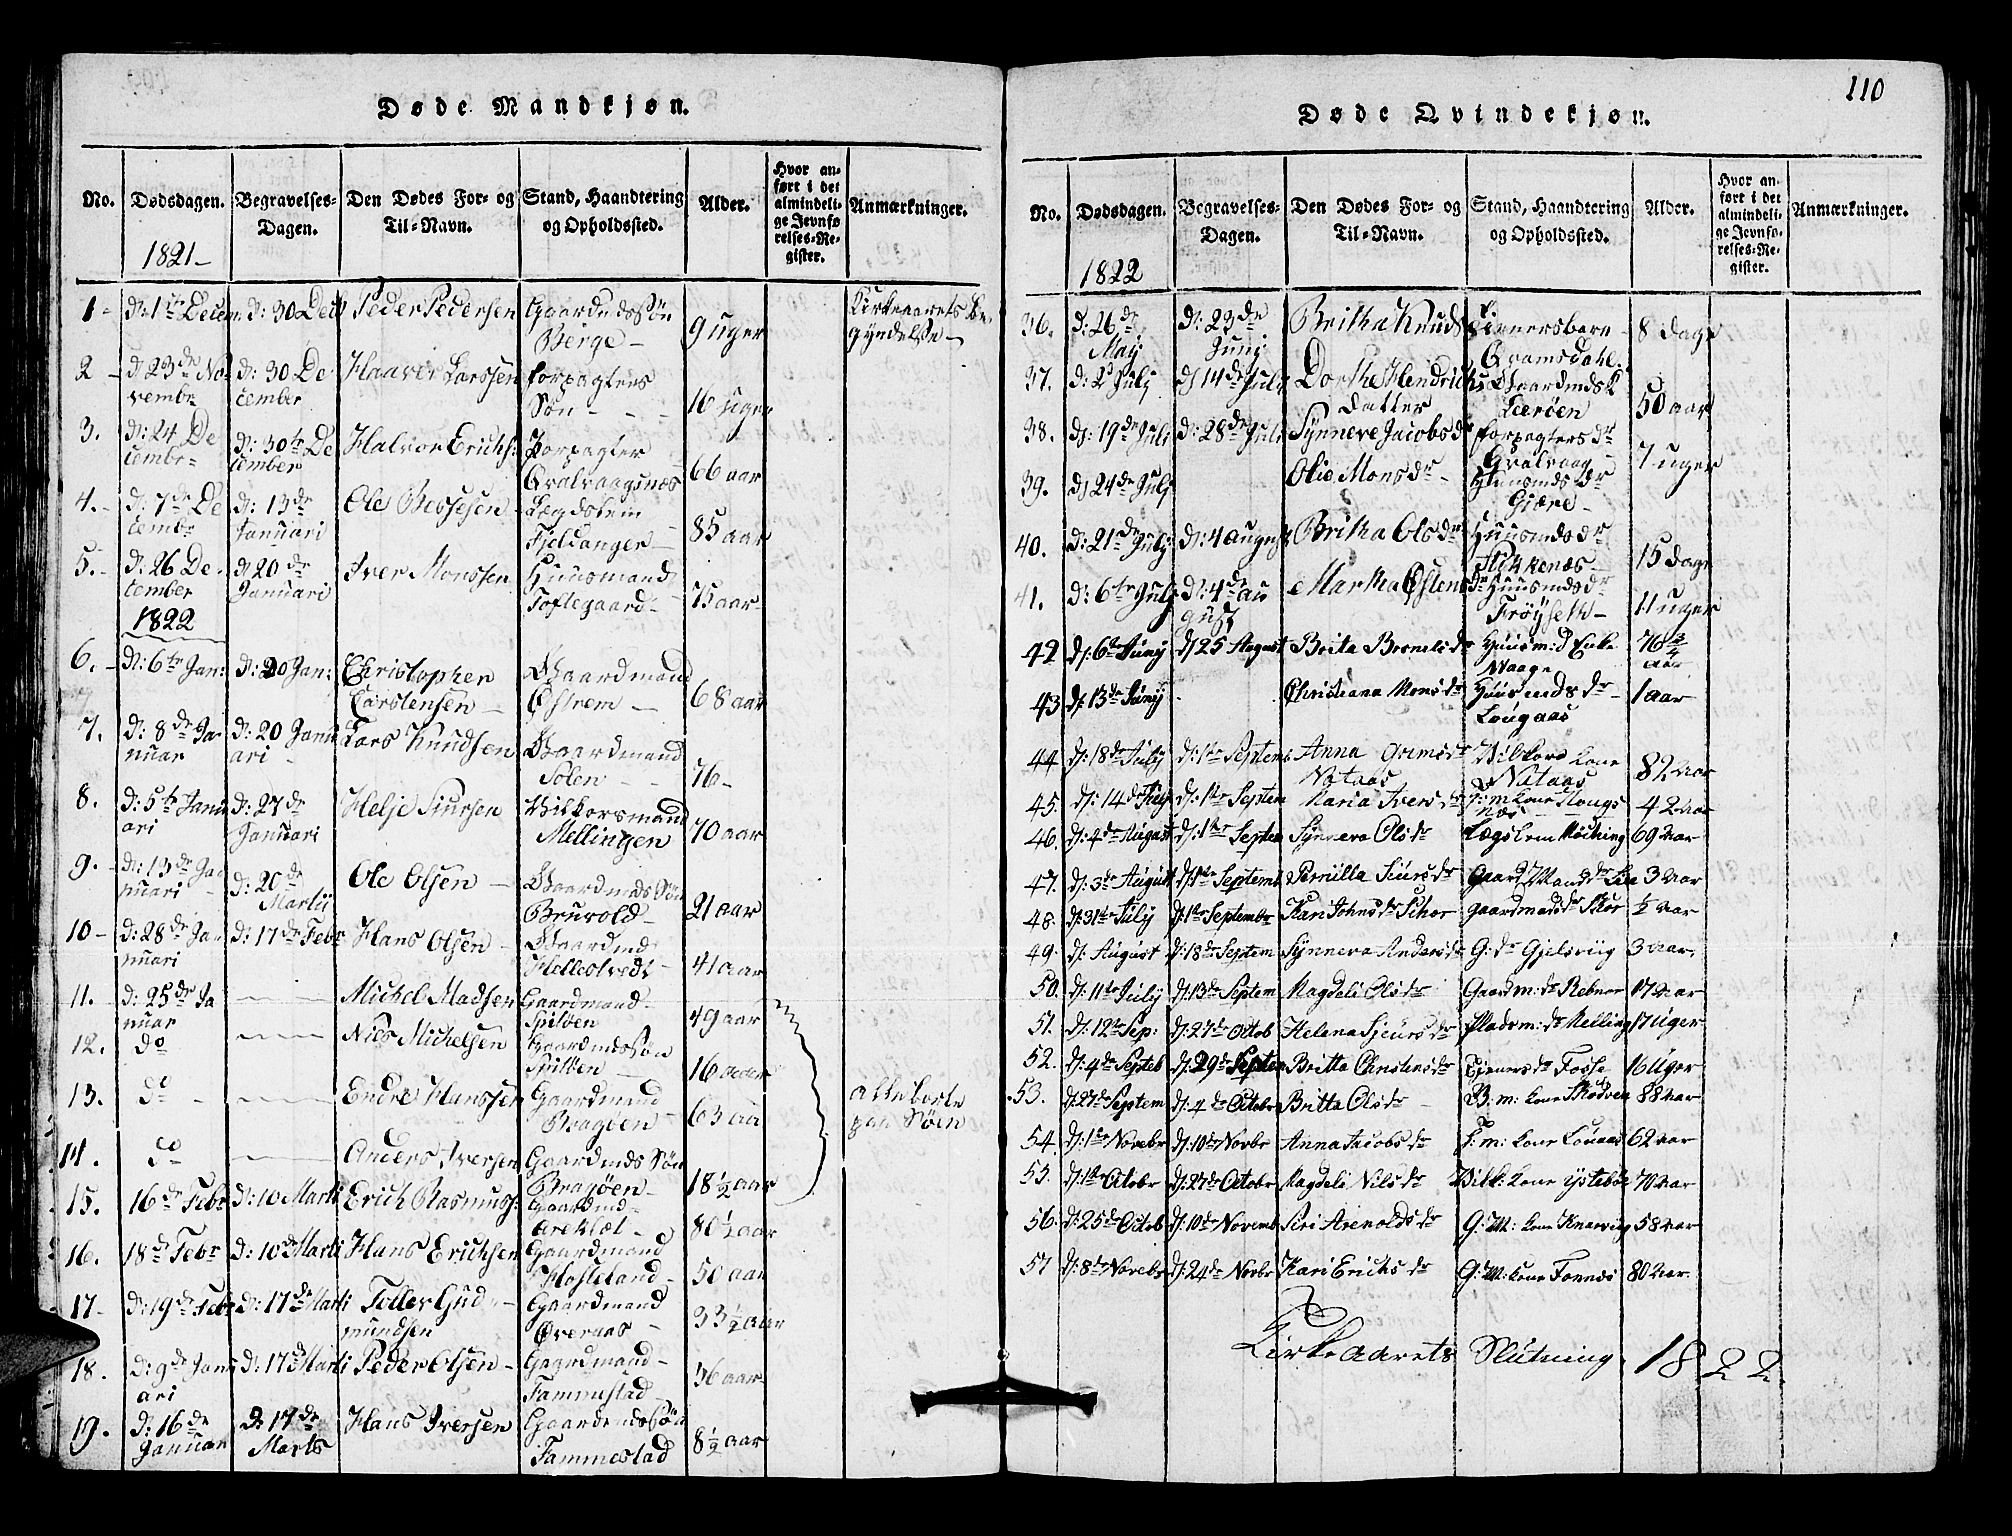 110
Døde Mandkjøn.
No. Dødsdagen. Begravelses-Dagen. Den Dødes For- og Til-Navn. Stand, Haandtering og Opholdssted. Alder. Hvor anført i det almindelige Jevnførelses-Register. Anmærkninger.
1821
1 d: 1te Decem. d: 30 Dec Peder Pedersen Gaardmdssøn Berge 9 uger Kirkeaarets Begyndelse
2 d 23de November d: 30 December Haaver Larssen forpagters Søn 16 uger
3. d: 24 December d: 30te December Halvor Erichs: Forpagter Qvalvaagsnæs 66 aar
4. d: 7de Decembr d: 13de Januari Ole Bessesen Lægdslem Fjeldanger 85 aar
5. d: 26 December d 20de Januari Iver Monssen Huusmand Toftegaard 75 aar
1822
6. d: 6te Jan: d: 20 Jan: Christopher Carstensen Gaardmand Østrem 68 aar
7. d: 8de Januar d: 20 Januari Lars Knudsen Gaardmand Solen 76
8. d: 5te Januari d: 27de Januari Helje Siursen Vilkorsmand Mellingen 70 aar
9. d: 13de Januari d: 20de Martij Ole Olsen Gaardmds Søn Bruvold 21 aar
10 d: 28de Januari d: 17de Febr Hans Olsen Gaardmd Hellestvedt 41 aar
11. d: 25de Januar Michel Madsen Gaardmand Spiløen 49 aar
12. do Niels Michelsen Gaardmdssøn Spiløen 16 aar
13. do Endre Hanssen Gaardmand Bragøen 63 aa alle borte paa Søen
14. do Anders Iversen Gaardmds Søn Bragøen 18½ aar
15. 16de Febr d: 10 Marti Erich Rasmuss: Gaardmd Areklæt 80½ aar
16. 18de Febr d: 10de Marti Hans Erichsen Gaardmand Hosteland 50 aar
17 d: 19de Febr d: 17de Marti Toller Gudmundsen Gaardmand Øveraas 33½ aar
18. d: 9de Januari d: 17de Marti Peder Olsen Gaardmand Fammestad 36 aar
19. d: 16de Januar d 17de Marts Hans Iversen Gaardmdssøn Fammestad 8½ aar
Døde Qvindekjøn.
No. Dødsdagen. Begravelses-Dagen. Den Dødes For- og Til-Navn. Stand, Haandtering og Opholdssted. Alder. Hvor anført i det almindelige Jevnførelses-Register. Anmærkninger.
1822
36. d: 26de May d: 23de Junj Britha Knuds Tienersbarn Qvamsdahl 8 dage
37. d: 2d Julj dj 14de Julj Dorthe Hendrichsdatter Gaardmdsk Leerøen 50 aar
38. dj: 19de Julj d: 28de Julj Synneve Jacobsdr forpagtersdr Qvalvaag 7 uger
39. dj 24de Julj Olie Monsdr Huusmdsdr Gjære
40. d: 21de Julj d: 4 august Britha Olsdr Huusmdsdr Flekkenæs 15 dage
41. d: 6te Julj d: 4de august Martha Østensdr Huusmdsdr Frøyseth 11 uger
42 dj: 6te Juny dj 25 August Brita Bronelsdr Huusm:d Enke Vaage 76¾ aar
43 dj. 13de Juny Christiana Monsdr Huusmdsdr Lougaas 1 aar
44 dj: 18de July dj: 1te Septemb Anna Ormsdr Nataas Vilkors kone Nataas 82 aar
45. dj: 14de July dj: 1te Septem Maria Iversdr kone næs 42 aar
46. dj: 4de August dj: 1te Septem Synneva Olsdr Lægslem 69 aar
47. dj: 3de August dj 1te Septemb Pernilla Siursdr Gaard Mandsdr 3 aar
48. dj: 31te July dj: 1te Septembr Kari Johnsdr Schor gaardmandsdr Skor ½ aar
49. dj: August dj: 18de Septem Synneva Andersdr G: dr Gjelsviig 3 aar.
50. dj: 11te July dj: 13de Septem Magdeli Olsdr Gaardm: dr Rebnor 17 aar
51. dj: 12te Sep: dj: 27de Octob Helena Sjeursdr Pladsm: dr Melling 17 Uger
52. dj: 4de Septeb dj: 29de Septem Britta Christensdr Tienersdr Fosse 16 Uger
53. dj: 27de Septem dj: 4de Octobr Britta Olsdr kone Skodven 88 aar
54. dj: 1te Novebr dj: 10de Novbr Anna Jacobsdr kone Louaas 62 aar
55. dj: 1te Octobr dj: 27de Octobr Magdeli Nilsdr Vilk: kone ystebøe 70 aar
56. dj: 25de Octob dj: 10de Novemb Siri Arenoldsdr G: M: kone Knarvig 58 aar
57 dj: 8de Novebr dj: 24de Novbr Kari Ericksdr G: M: kone Fonnes 80 aar
Kirkeaarets Slutning 1822